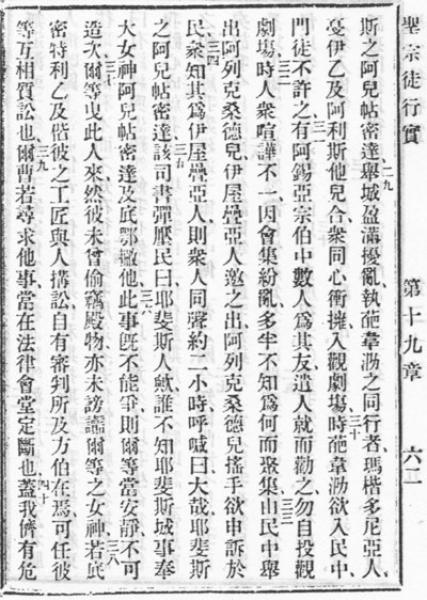 聖宗徒行實　第十九章　六二
斯之阿兒帖密達、舉城盈滿擾亂、執葩韋泐之同行者、瑪楷多尼亞人、二九
憂伊乙及阿利斯他兒合、衆同心衝擁入觀劇場、三十時葩韋泐欲入民中、
門徒不許之、三一有阿錫亞宗伯中數人爲其友、遣人就而勸之、勿自投觀
劇場、三二時人衆喧譁不一、因會集紛亂、多半不知爲何而聚集、三三由民中舉
出阿列克桑德兒、伊屋疊亞人邀之出、阿列克桑德兒搖手、欲申訴於
民、三四衆知其爲伊屋疊亞人、則衆人同聲約二小時呼喊曰、大哉、耶斐斯
之阿兒帖密達、三五該司書彈壓民曰、耶斐斯人歟、誰不知耶斐斯城事奉
大女神阿兒帖密達及底鄂撇他、三六此事旣不能爭、則爾等當安靜、不可
造次、三七爾等曳此人來、然彼未曾偷竊殿物、亦未謗讟爾等之女神、三八若底
密特利乙及偕彼之工匠與人搆訟、自有審判所及方伯在焉、可任彼
等互相質訟也、三九爾曹若尋求他事、當在法律會堂定斷也、四十蓋我儕有危